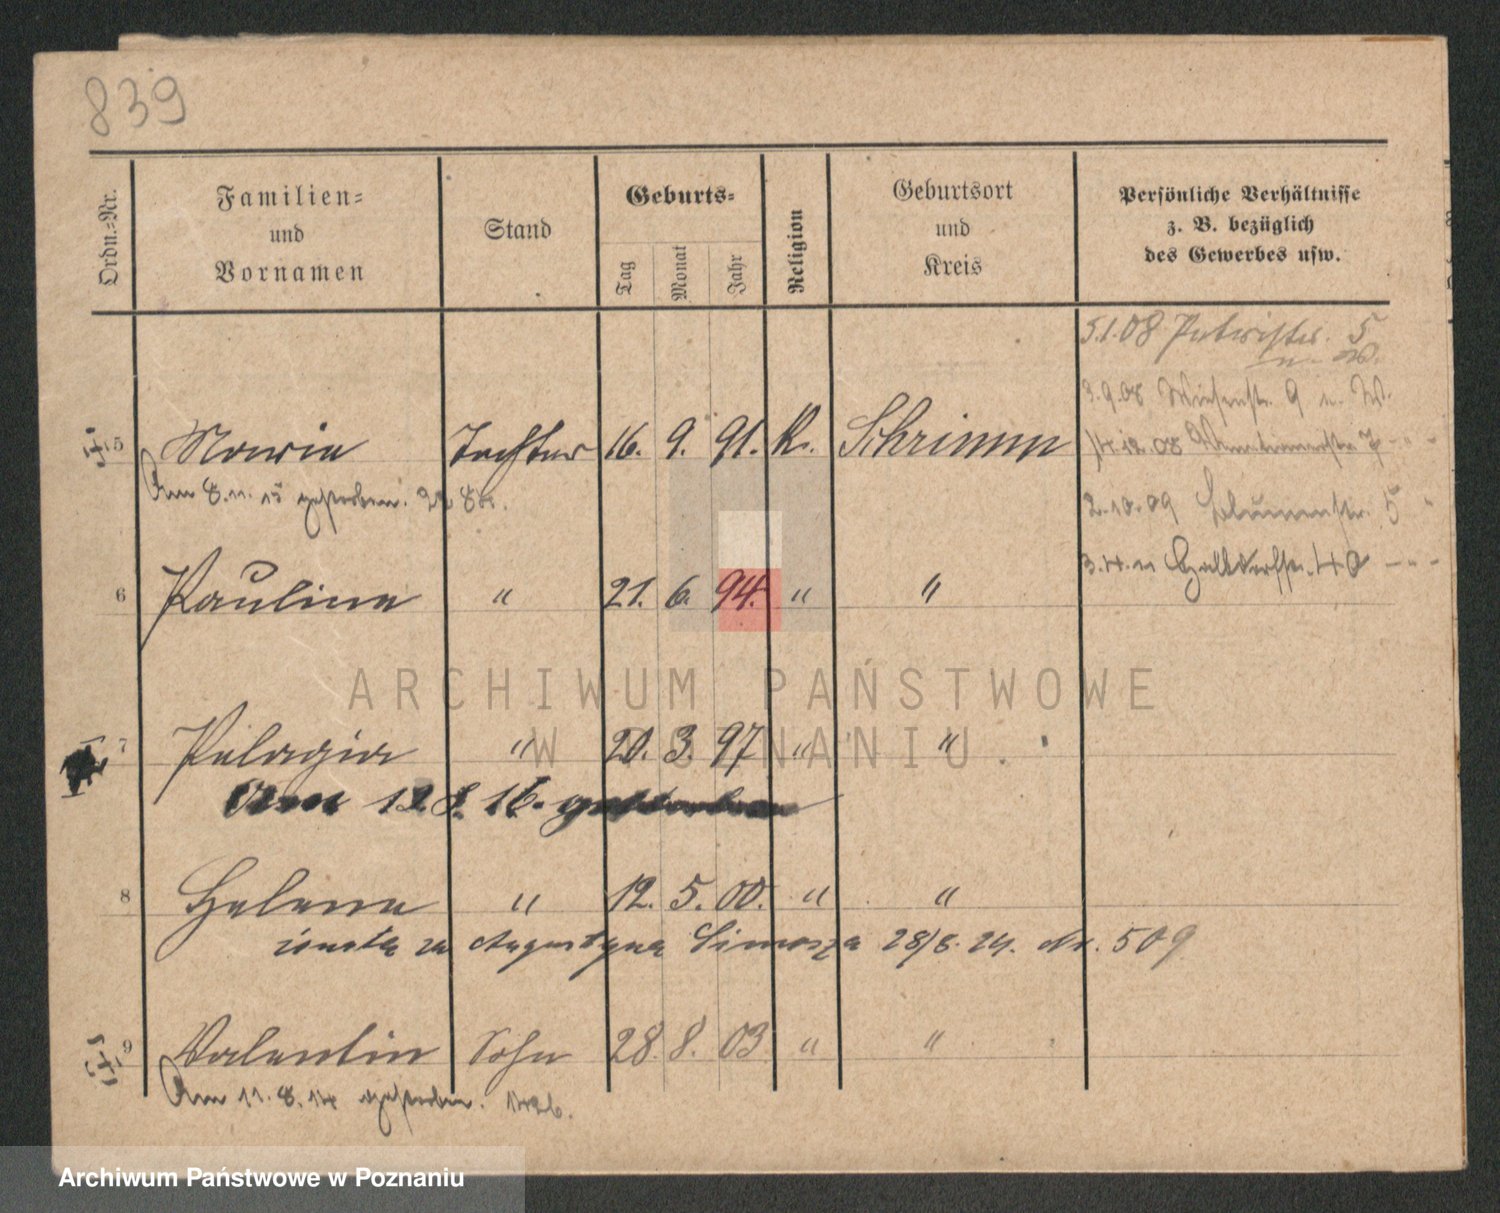 839
Ordn.-Nr.
Familien-
und
Vornamen
Stand
Geburts-
Tag
Monat
Jahr
Religion
Geburtsort
und
Kreis
Persönliche Verhältnisse
z. B. bezüglich
des Gewerbes usw.
5.1.08 5
3.9.08 Wiesenstr. 9 u. W.
5 Maria Tochter 16. 9. 91. K. Schrimm
14.12.08 7 - " -
Am 8.11.15 gestorben.
2.10.09 Blumenstr. 5 "
3.4.11 40 - " -
6 Paulina " 21. 6. 94. " "
ARCHIWUM PAŃSTWOWE
W POZNANIU
7 Pelagia " 20. 3. 97 " "
Am 12.8.16. gestorben
8 Helena " 12. 5. 00. " "
za Augustyna Simosza 28/8.24. Nr. 509
9 Valentin Sohn 28. 8. 03 " "
Am 11.8.14 gestorben.
Archiwum Państwowe w Poznaniu